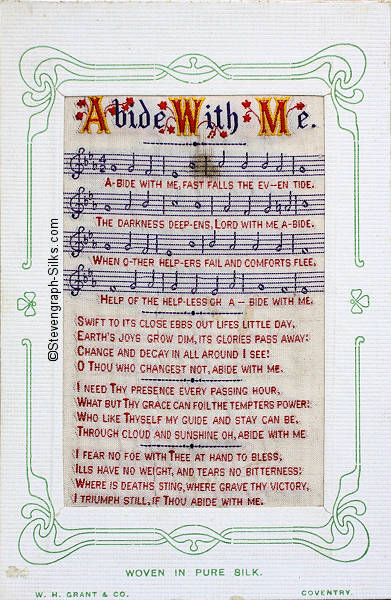 Abide With Me.
A-BIDE WITH ME, FAST FALLS THE EV--EN TIDE.
THE DARKNESS DEEP-ENS, LORD WITH ME A-BIDE.
WHEN O-THER HELP-ERS FAIL AND COMFORTS FLEE,
HELP OF THE HELP-LESS OH A - BIDE WITH ME.
SWIFT TO ITS CLOSE EBBS OUT LIFES LITTLE DAY,
EARTH'S JOYS GROW DIM, ITS GLORIES PASS AWAY:
CHANGE AND DECAY IN ALL AROUND I SEE:
O THOU WHO CHANGEST NOT, ABIDE WITH ME.
I NEED THY PRESENCE EVERY PASSING HOUR,
WHAT BUT THY GRACE CAN FOIL THE TEMPTERS POWER:
WHO LIKE THYSELF MY GUIDE AND STAY CAN BE,
THROUGH CLOUD AND SUNSHINE OH, ABIDE WITH ME
I FEAR NO FOE WITH THEE AT HAND TO BLESS,
ILLS HAVE NO WEIGHT, AND TEARS NO BITTERNESS:
WHERE IS DEATHS STING, WHERE GRAVE THY VICTORY,
I TRIUMPH STILL, IF THOU ABIDE WITH ME.
WOVEN IN PURE SILK.
W. H. GRANT & CO. COVENTRY.
©Stevengraph-Silks.com